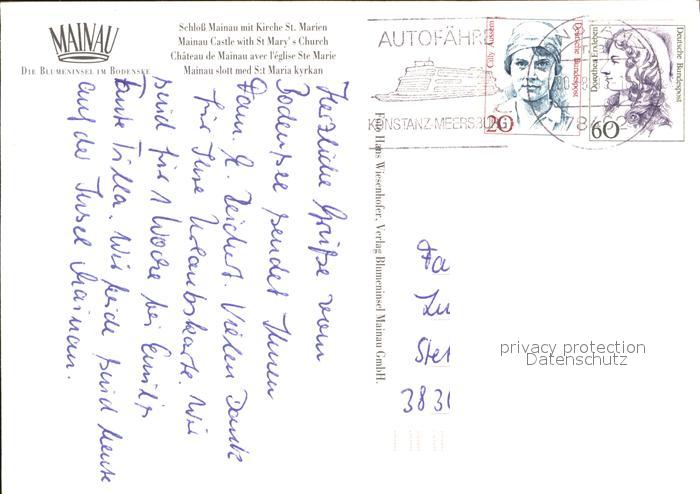 MAINAU
DIE BLUMENINSEL IM BODENSEE
Schloß Mainau mit Kirche St. Marien
Mainau Castle with St Mary's Church
Château de Mainau avec l'église Ste Marie
Mainau slott med S:t Maria kyrkan
AUTOFÄHRE
KONSTANZ-MEERSBURG
Cilly Aussem
Deutsche Bundespost
20
Dorothea Erxleben
Deutsche Bundespost
60
Herzliche Grüße vom
Bodensee sendet Ihnen
Fam. Teichert. Vielen Dank
für Ihre Urlaubskarte. Wir
sind für 1 Woche bei
Tante Tilla. Wir beide sind heute
auf der Insel Mainau.
Foto Hans Wiesenhofer, Verlag Blumeninsel Mainau GmbH.
Fa
Zu
Ster
3831
privacy protection
Datenschutz